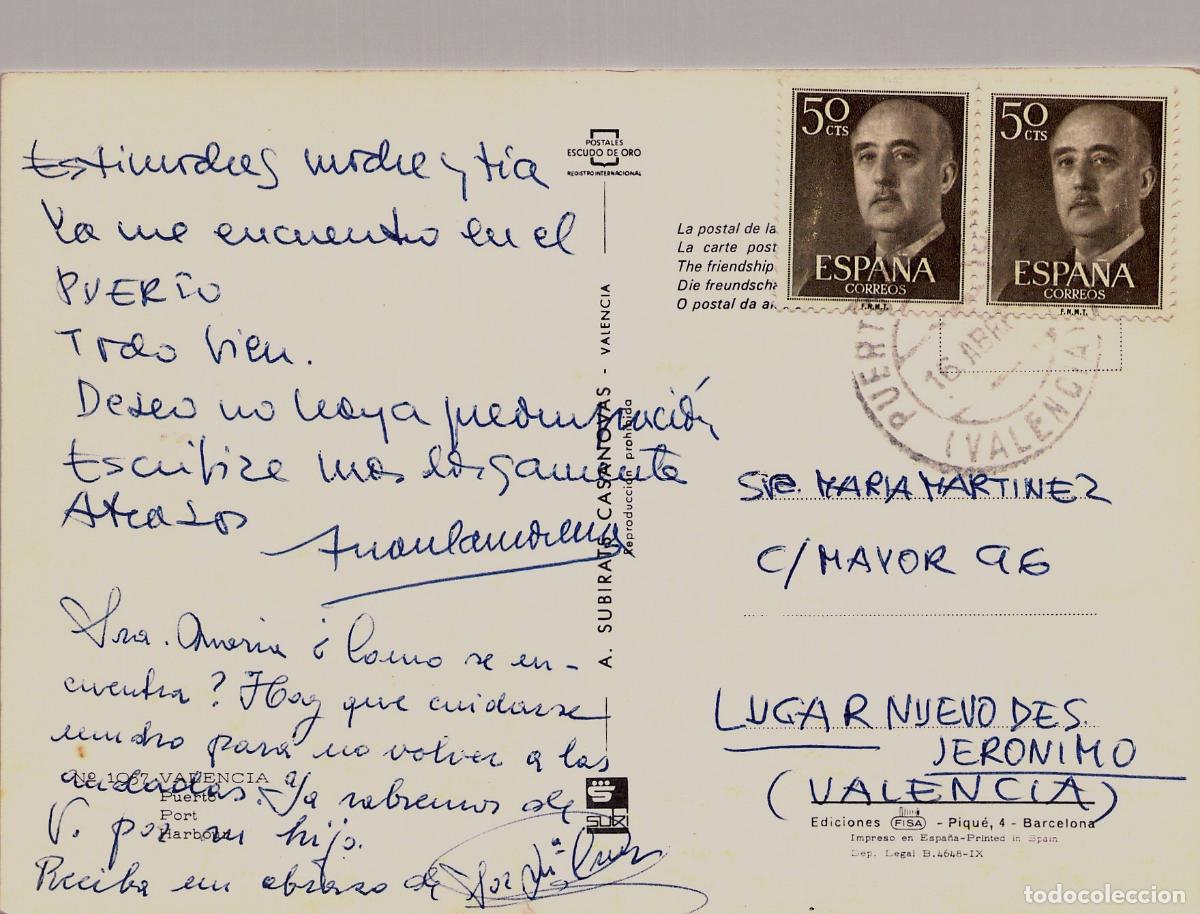 Estimades madre y tía
Ya me encuentro en el
PUERTO
Todo bien.
Deseo no haya preocupación
Escribire mas largamente
Sra. Maria ¿Como se en-
cuentra? Hay que cuidarse
mucho para no volver a las
andadas. Ya sabremos de
V. por su hijo.
Reciba un abrazo de
Nº 1067 VALENCIA
Puerto
Port
Harbour
POSTALES
ESCUDO DE ORO
REGISTRO INTERNACIONAL
A. SUBIRATS CASANOVAS - VALENCIA
Reproducción prohibida
SUXI
La postal de la
La carte post
The friendship
Die freundscha
O postal da a
50 CTS
ESPAÑA
CORREOS
F.N.M.T.
50 CTS
ESPAÑA
CORREOS
F.N.M.T.
PUERT
16 ABR
(VALENCIA)
Sra. MARIA MARTINEZ
C/ MAYOR 96
LUGAR NUEVO DE S.
JERONIMO
(VALENCIA)
Ediciones FISA - Piqué, 4 - Barcelona
Impreso en España-Printed in Spain
Dep. Legal B.4648-IX
todocoleccion